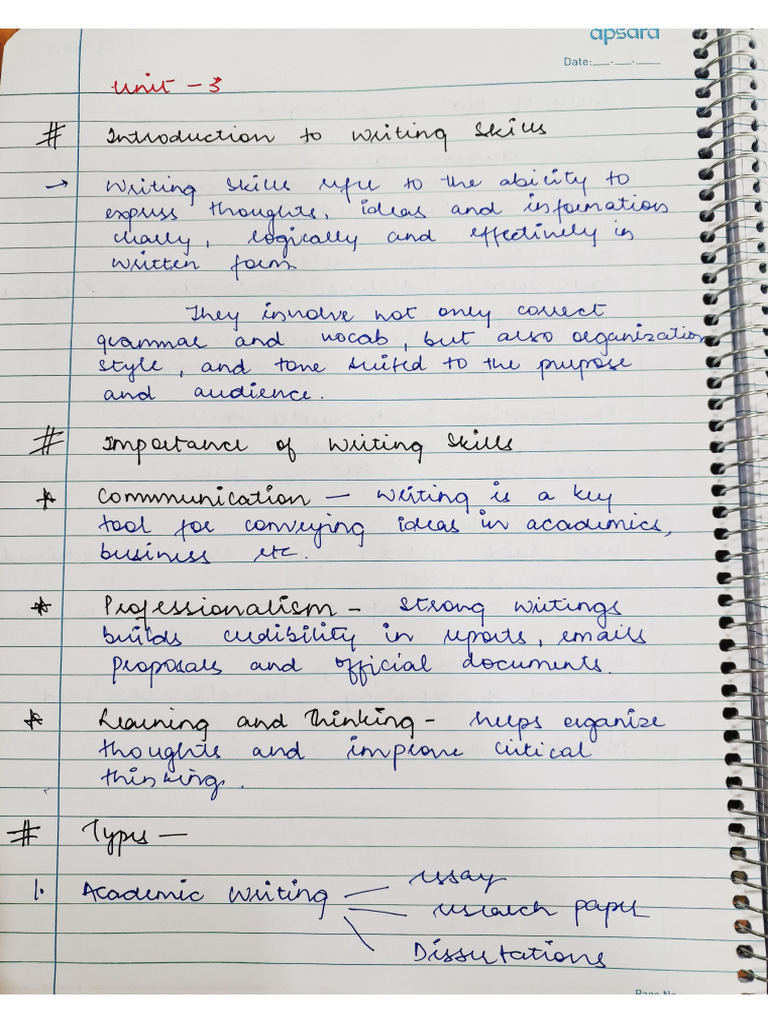 apsara
Date:__.__.__
Unit - 3
# Introduction to Writing Skills
→ Writing skills refer to the ability to
express thoughts, ideas and information
clearly, logically and effectively in
written form
They involve not only correct
grammar and vocab, but also organization
style, and tone suited to the purpose
and audience.
# Importance of Writing Skills
* Communication — writing is a key
tool for conveying ideas in academics,
business etc.
* Professionalism - strong writings
builds credibility in reports, emails
proposals and official documents.
* Learning and Thinking - helps organize
thoughts and improve critical
thinking.
# Types —
1. Academic Writing — essay
— research paper
Dissertations
Page No